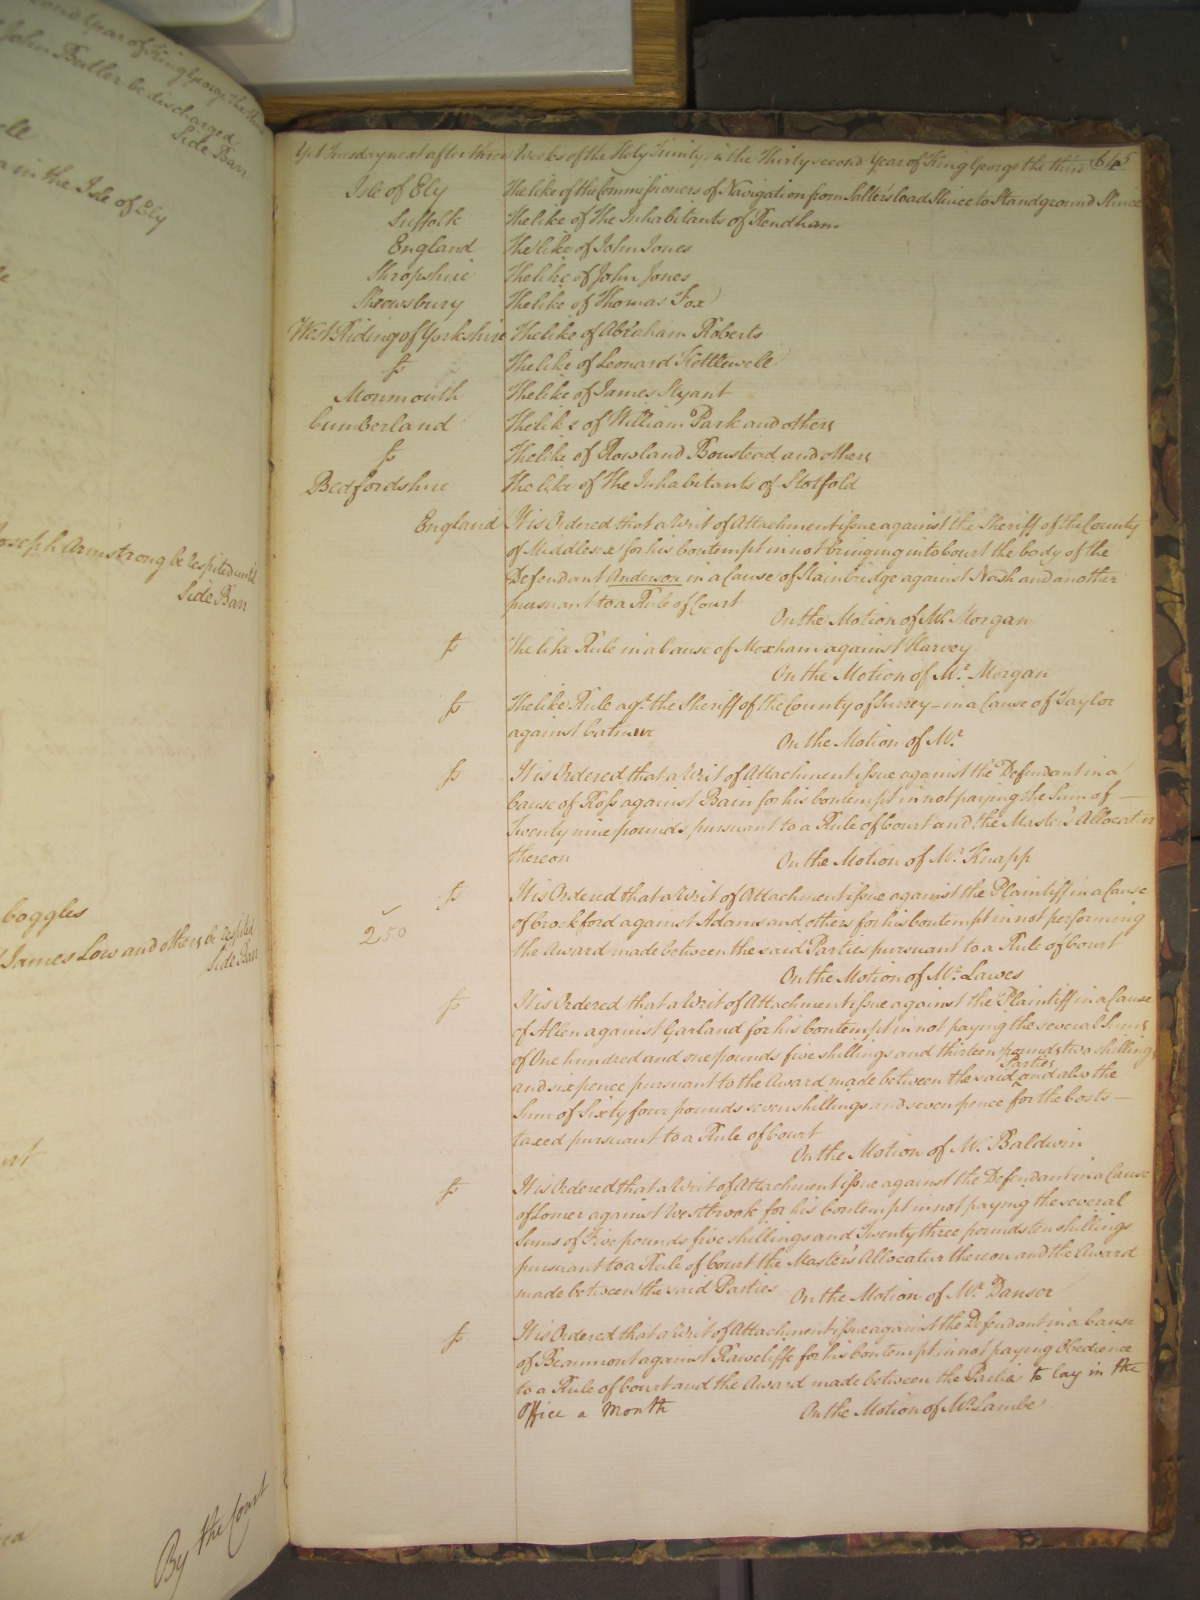 second Year of King George the third
John Butler be discharged
Side Barr
in the Isle of Ely
Joseph Armstrong be respited until
Side Barr
Coggles
James Low and others be respited
Side Barr
By the Court
Yet Tuesday next after three Weeks of the Holy Trinity in the Thirty second Year of King George the third 645
Isle of Ely The like of the Commissioners of Navigation from Salters load Sluice to Standground Sluice
Suffolk The like of The Inhabitants of Kendham
England The like of John Jones
Shropshire The like of John Jones
Shrewsbury The like of Thomas Fox
West Riding of Yorkshire The like of Abraham Roberts
fs The like of Leonard Kettlewell
Monmouth The like of James Styant
Cumberland The like of William Park and others
fs The like of Rowland Boustead and others
Bedfordshire The like of The Inhabitants of Stotfold
England It is Ordered that a Writ of Attachment issue against the Sheriff of the County
of Middlesex for his Contempt in not bringing into Court the body of the
Defendant Anderson in a Cause of Stainbridge against Nash and another
pursuant to a Rule of Court
On the Motion of Mr. Morgan
fs The like Rule in a Cause of Moxham against Harvey
On the Motion of Mr. Morgan
fs The like Rule agt. the Sheriff of the County of Surrey – in a Cause of Taylor
against
On the Motion of Mr.
fs It is Ordered that a Writ of Attachment issue against the Defendant in a
Cause of Ross against Bain for his Contempt in not paying the Sum of —
Twenty nine pounds, pursuant to a Rule of Court and the Master's Allocatur
thereon On the Motion of Mr. Knapp
fs It is Ordered that a Writ of Attachment issue against the Plaintiff in a Cause
of Crockford against Adams and others for his Contempt in not performing
250
the Award made between the said Parties pursuant to a Rule of Court
On the Motion of Mr. Lawes
fs It is Ordered that a Writ of Attachment issue against the Plaintiff in a Cause
of Allen against Garland for his Contempt in not paying the several Sums
of One hundred and one pounds five shillings and thirteen pounds two shillings
Parties
and six pence pursuant to the Award made between the said ^ and also the
Sum of Sixty four pounds seven shillings and seven pence for the Costs —
taxed pursuant to a Rule of Court
On the Motion of Mr. Baldwin
fs It is Ordered that a Writ of Attachment issue against the Defendant in a Cause
of Lomer against Westbrook for his Contempt in not paying the several
Sums of Five pounds five shillings and Twenty three pounds ten shillings
pursuant to a Rule of Court the Master's Allocatur thereon and the Award
made between the said Parties On the Motion of Mr. Danser
fs It is Ordered that a Writ of Attachment issue against the Defendant in a Cause
of Beaumont against Rawcliffe for his Contempt in not paying Obedience
to a Rule of Court and the Award made between the Parties to lay in the
Office a Month On the Motion of Mr. Lambe